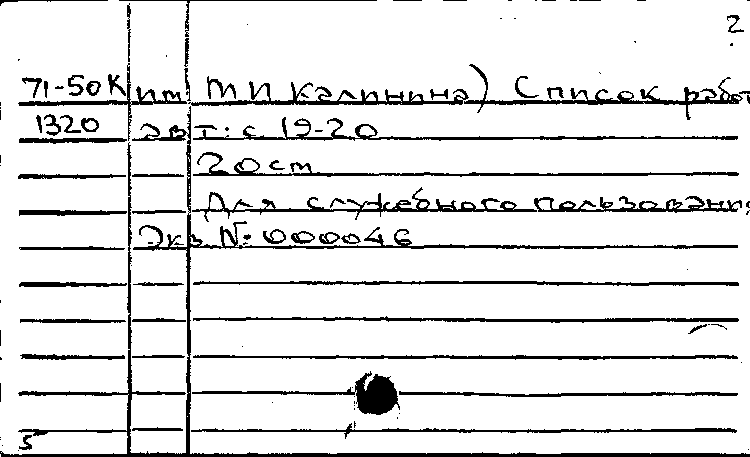 2
71-50К им МИ Калинина) Список работ
1320 авт: с 19-20
20 см
Для служебного пользования
Экз №: 000046
5